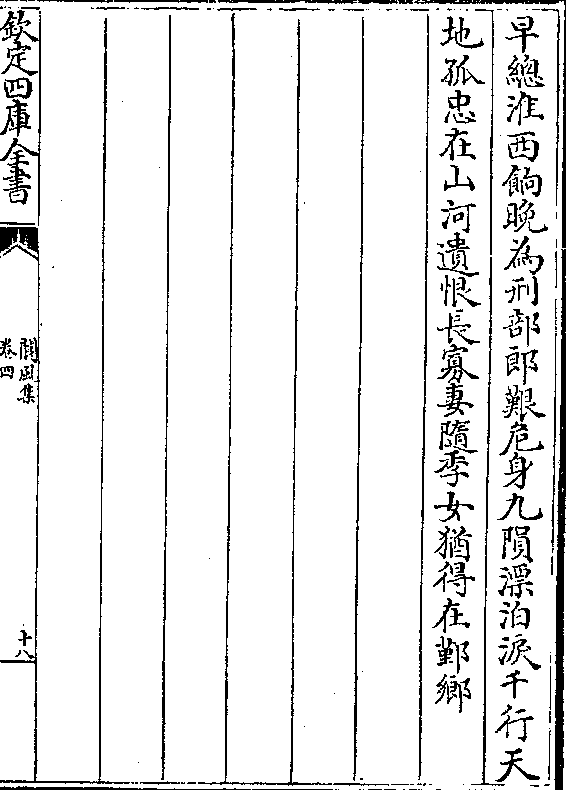 早總淮西餉晚為刑部郎艱危身九隕漂泊淚千行天
地孤忠在山河遺恨長寡妻隨季女猶得在鄞鄉
欽定四庫全書
閬風集
卷四
十八